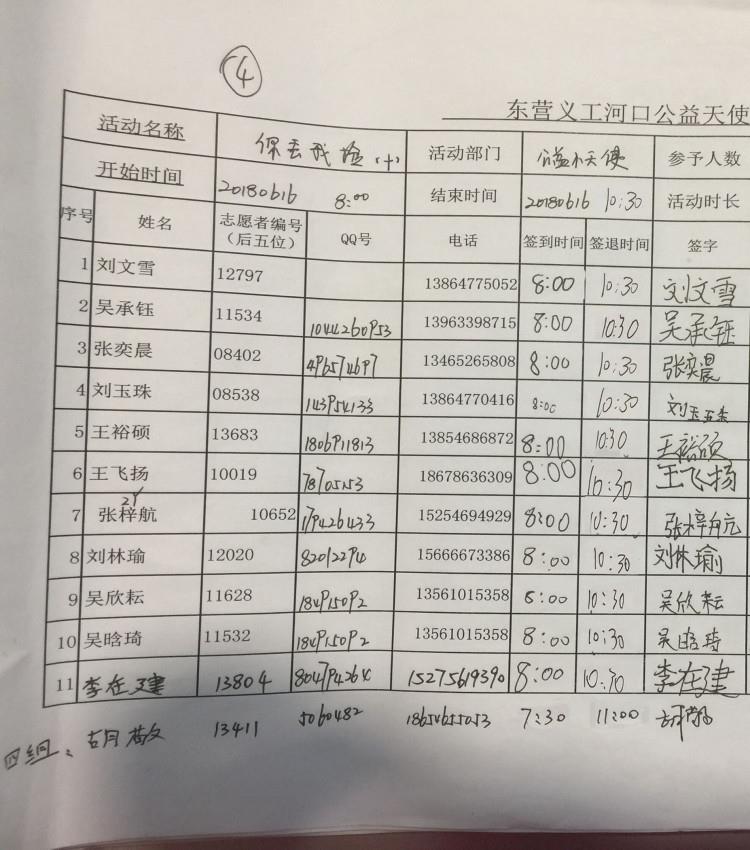 ④
东营义工河口公益天使
活动名称 保丢我捡(十) 活动部门 公益小天使 参予人数
开始时间 20180616 8:00 结束时间 20180616 10:30 活动时长
序号 姓名 志愿者编号（后五位） QQ号 电话 签到时间 签退时间 签字
1 刘文雪 12797 13864775052 8:00 10:30 刘文雪
2 吴承钰 11534 1044260953 13963398715 8:00 10:30 吴承钰
3 张奕晨 08402 496574697 13465265808 8:00 10:30 张奕晨
4 刘玉珠 08538 143954133 13864770416 8:00 10:30 刘玉珠
5 王裕硕 13683 1806911813 13854686872 8:00 10:30 王裕硕
6 王飞扬 10019 18678636309 8:00 10:30 王飞扬
7 张梓航 10652 179426433 15254694929 8:00 10:30 张梓航
8 刘林瑜 12020 82012294 15666673386 8:00 10:30 刘林瑜
9 吴欣耘 11628 184915092 13561015358 8:00 10:30 吴欣耘
10 吴晗琦 11532 184915092 13561015358 8:00 10:30 吴晗琦
11 李在建 13804 804794264 15275619390 8:00 10:30 李在建
四组： 胡敬 13411 5060482 18654655053 7:30 11:00